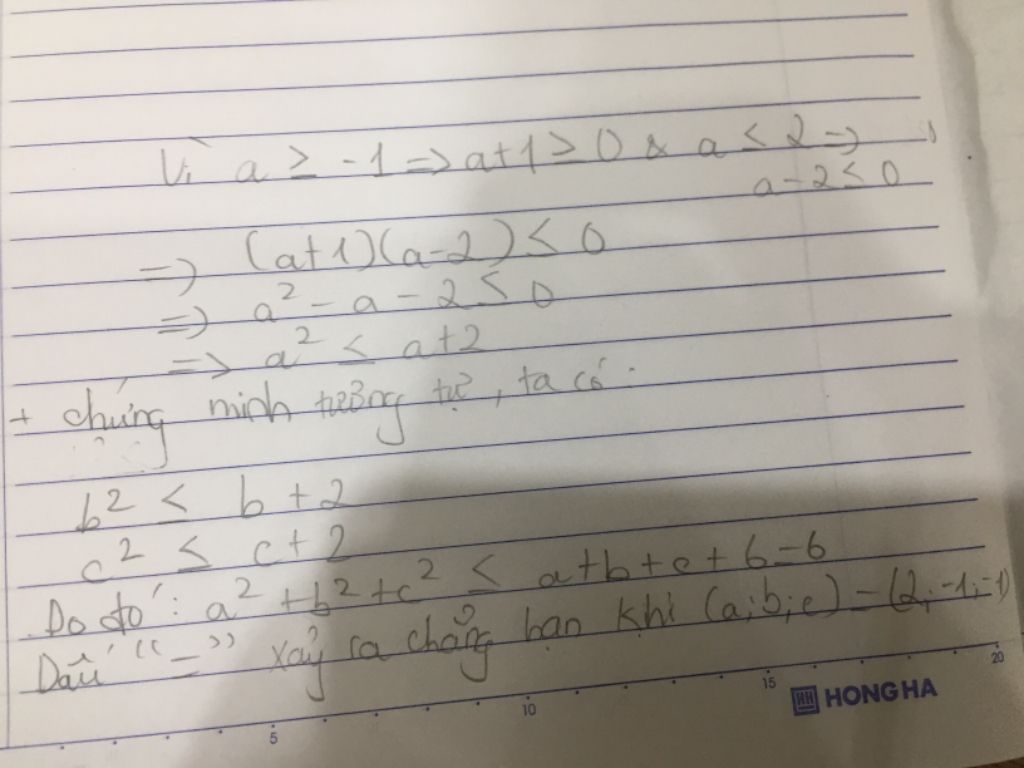 Vì a ≥ -1 => a+1 ≥ 0 & a ≤ 2 =>
a - 2 ≤ 0
=> (a+1)(a-2) ≤ 0
=> a² - a - 2 ≤ 0
=> a² ≤ a+2
+ chứng minh tương tự, ta có:
b² ≤ b + 2
c² ≤ c + 2
Do đó: a² + b² + c² ≤ a+b+c+6=6
Dấu "=" xảy ra chẳng hạn khi (a;b;c) = (2;-1;-1)
5 10 15 20
HH HONG HA